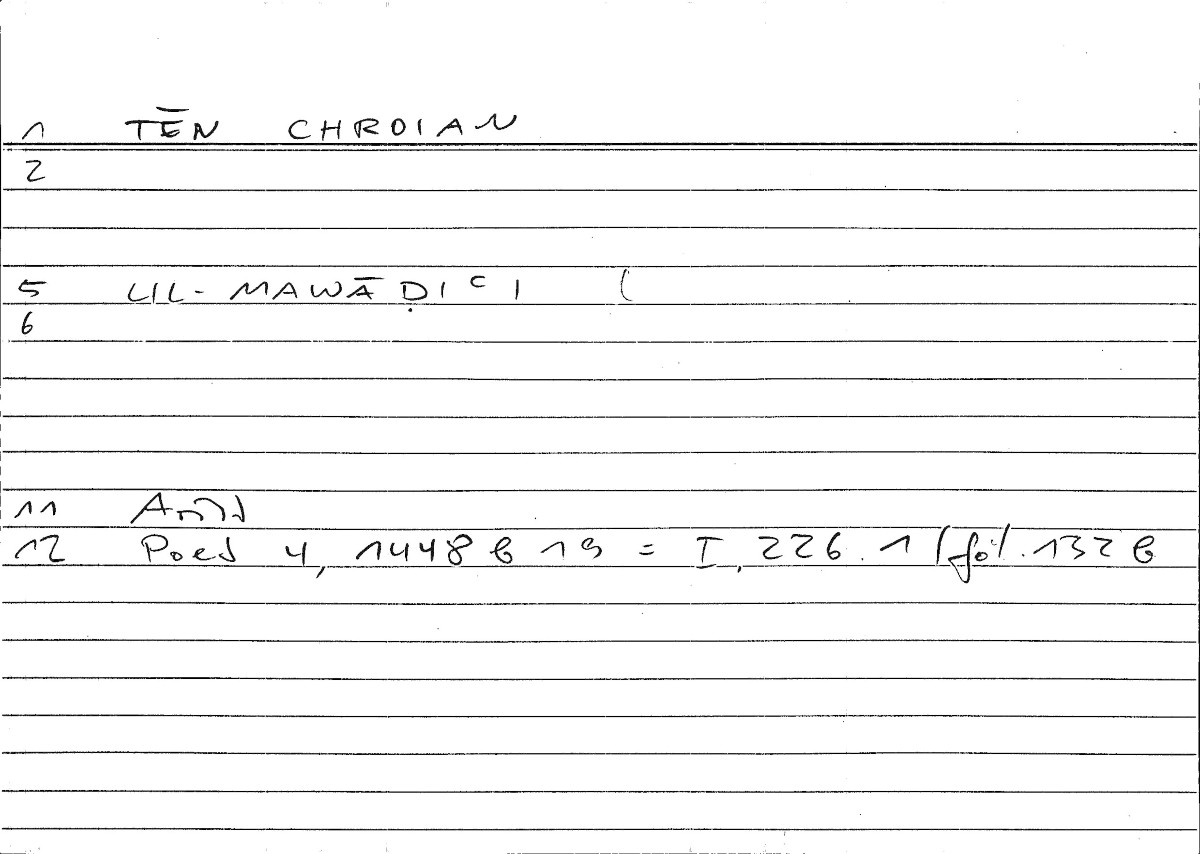 1 TĒN CHROIAN
2
5 LIL-MAWĀḌIᶜI (
6
11 Arist
12 Poet 4, 1448 b 19 = I, 226.1 / fol. 132 b